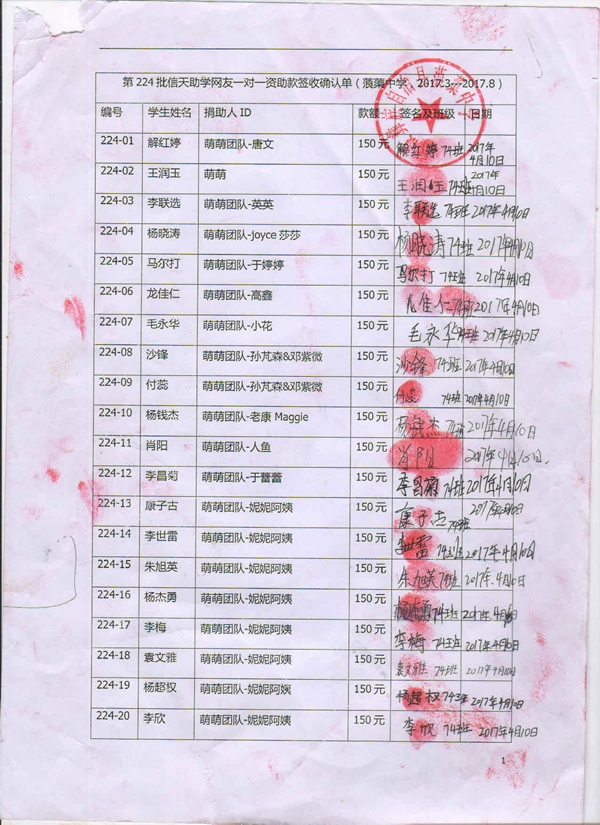 第224批信天助学网友一对一资助款签收确认单（蒗蕖中学 2017.3---2017.8）
编号 学生姓名 捐助人ID 款额 签名及班级 日期
224-01 解红婷 萌萌团队-唐文 150元 解红婷 74班 2017年4月10日
224-02 王润玉 萌萌 150元 王润玉 74班 2017年4月10日
224-03 李联选 萌萌团队-英英 150元 李联选 74班 2017年4月10日
224-04 杨晓涛 萌萌团队-joyce莎莎 150元 杨晓涛 74班 2017年4月10日
224-05 马尔打 萌萌团队-于婷婷 150元 马尔打 74班 2017年4月10日
224-06 龙佳仁 萌萌团队-高鑫 150元 龙佳仁 74班 2017年4月10日
224-07 毛永华 萌萌团队-小花 150元 毛永华 74班 2017年4月10日
224-08 沙锋 萌萌团队-孙芃森&邓紫微 150元 沙锋 74班 2017年4月10日
224-09 付蕊 萌萌团队-孙芃森&邓紫微 150元 付蕊 74班 2017年4月10日
224-10 杨钱杰 萌萌团队-老康 Maggie 150元 杨钱杰 74班 2017年4月10日
224-11 肖阳 萌萌团队-人鱼 150元 肖阳 2017年4月10日.
224-12 李昌菊 萌萌团队-于蕾蕾 150元 李昌菊 74班 2017年4月10日
224-13 康子古 萌萌团队-妮妮阿姨 150元 康子古 74班 2017年4月10日
224-14 李世雷 萌萌团队-妮妮阿姨 150元 李世雷 74班 2017年4月10日
224-15 朱旭英 萌萌团队-妮妮阿姨 150元 朱旭英 74班 2017年4月10日
224-16 杨杰勇 萌萌团队-妮妮阿姨 150元 杨杰勇 74班 2017年4月10日
224-17 李梅 萌萌团队-妮妮阿姨 150元 李梅 74班 2017年4月10日
224-18 袁文雅 萌萌团队-妮妮阿姨 150元 袁文雅 74班 2017年4月10日
224-19 杨超权 萌萌团队-妮妮阿姨 150元 杨超权 74班 2017年4月10日
224-20 李欣 萌萌团队-妮妮阿姨 150元 李欣 74班 2017年4月10日
1